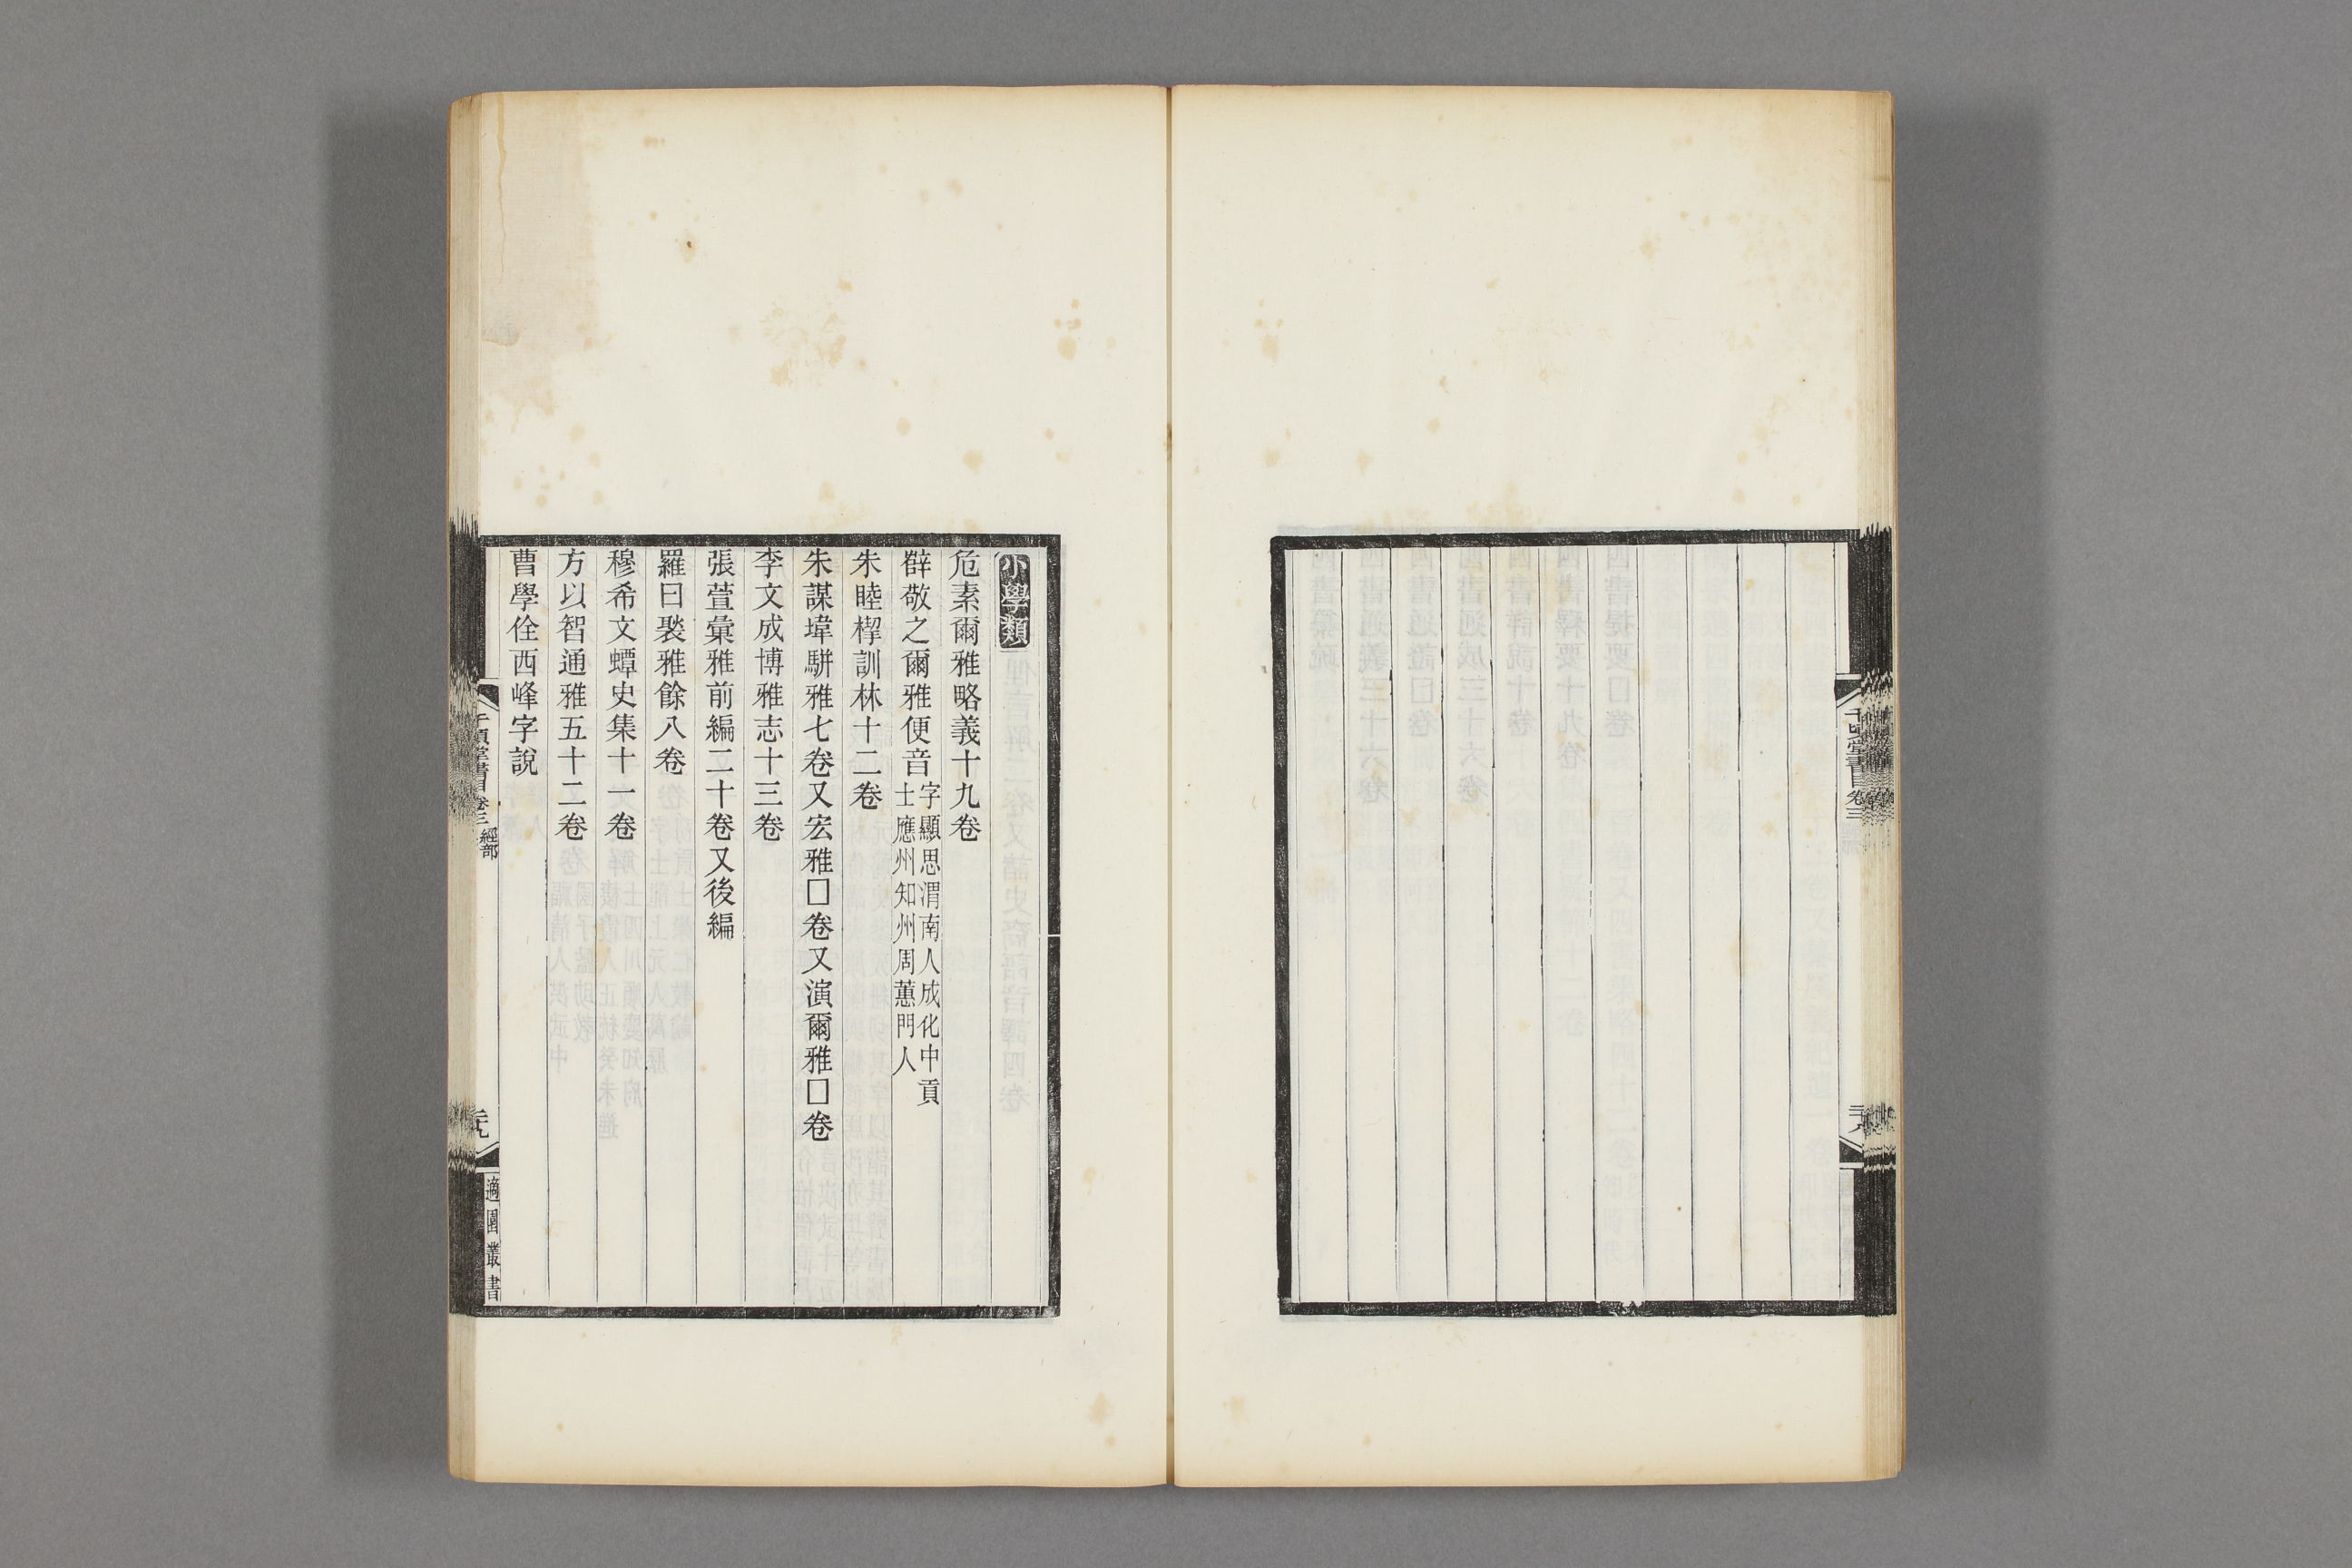 小學類
危素爾雅略義十九卷
薛敬之爾雅便音字顯思渭南人成化中貢
士應州知州周蕙門人
朱睦㮮訓林十二卷
朱謀㙔駢雅七卷又宏雅□卷又演爾雅□卷
李文成博雅志十三卷
張萱彙雅前編二十卷又後編
羅曰褧雅餘八卷
穆希文蟫史集十一卷
方以智通雅五十二卷
曹學佺西峰字說
千頃堂書目 卷三 經部
適園叢書
千頃堂書目 卷三